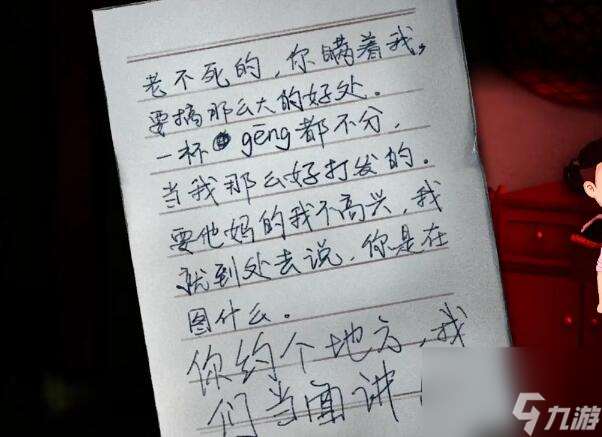 老不死的，你瞒着我，
要搞那么大的好处。
一杯gēng都不分，
当我那么好打发的。
要他妈的我不高兴，我
就到处去说，你是在
图什么。
你约个地方，我
们当面讲
九游